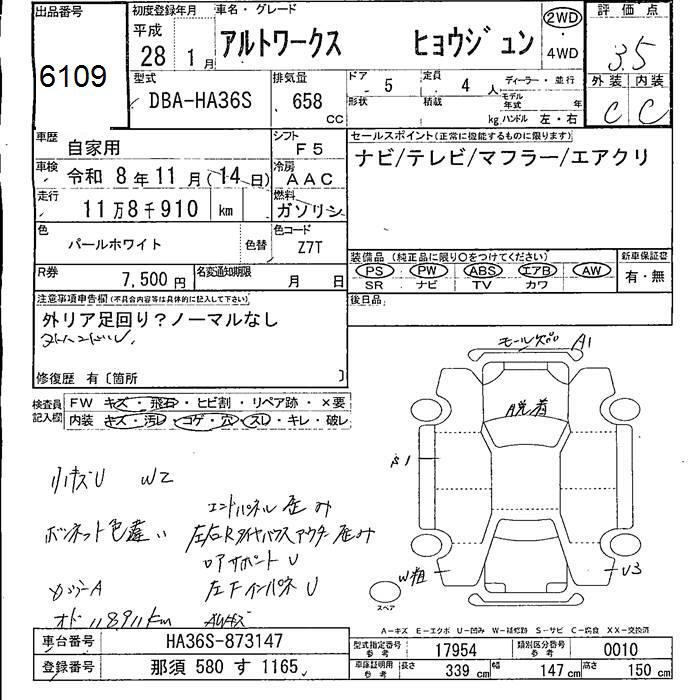 出品番号
6109
初度登録年月
平成
28 1月
車名・グレード
アルトワークス ヒョウジュン
2WD
・
4WD
評価点
3.5
外装 内装
C C
型式
DBA-HA36S
排気量
658 CC
ドア 5
形状
定員 4 人
積載 kg
ディーラー・並行
モデル年式 年
ハンドル 左・右
車歴
自家用
シフト
F5
車検
令和 8年11月(14日)
冷房
AAC
走行
11万8千910 km
燃料
ガソリン
色
パールホワイト
色替
色コード
Z7T
R券
7,500円
名変通知期限
月 日
セールスポイント(正常に機能するものに限ります)
ナビ/テレビ/マフラー/エアクリ
装備品 (純正品に限り○をつけてください)
PS PW ABS エアB AW
SR ナビ TV カワ
新車保証書
有・無
後日品
注意事項申告欄(不具合内容等は具体的に記入して下さい)
外リア足回り?ノーマルなし
修復歴 有〔箇所 〕
検査員記入欄
FW キズ・飛石・ヒビ割・リペア跡・×要
内装 キズ・汚レ・コゲ・穴・スレ・キレ・破レ
A1
脱着
U3
小キズU W2
ボンネット色違い
エンドパネル歪み
ロアサポートU
左FインパネU
カプラーA
オド118911km AWキズ
スペア
A-キズ E-エクボ U-凹み W-補修跡 S-サビ C-腐食 XX-交換済
車台番号
HA36S-873147
登録番号
那須 580 す 1165
型式指定番号
参考
17954
類別区分番号
参考
0010
車庫証明用
参考
長さ 339 cm
幅 147 cm
高さ 150 cm